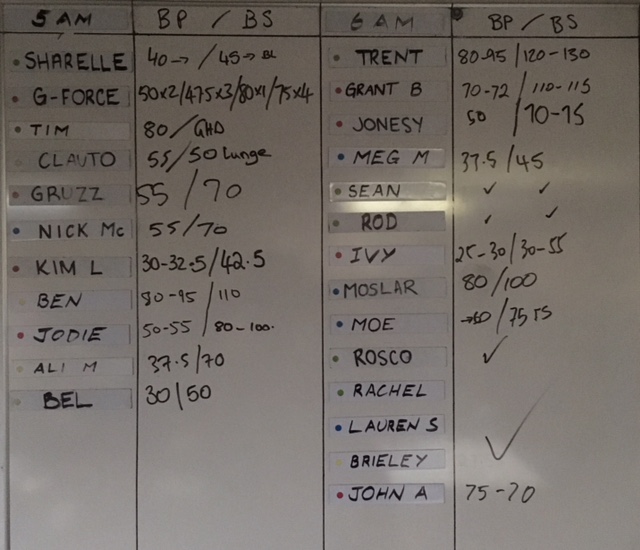 5 AM BP / BS
SHARELLE 40→ / 45→ BL
G-FORCE 50x2/47.5x3/80x1/75x4
TIM 80 / GHD
CLAUTO 55/50 lunge
GRUZZ 55 / 70
NICK Mc 55/70
KIM L 30-32.5/42.5
BEN 80-95 / 110
JODIE 50-55 / 80-100.
ALI M 37.5/70
BEL 30/50
6 AM BP / BS
TRENT 80-95/120-130
GRANT B 70-72 / 110-115
JONESY 50 / 70-75
MEG M 37.5/45
SEAN ✓ ✓
ROD ✓ ✓
IVY 25-30/30-55
MOSLAR 80/100
MOE →60 / 75
ROSCO ✓
RACHEL
LAUREN S
BRIELEY ✓
JOHN A 75-70